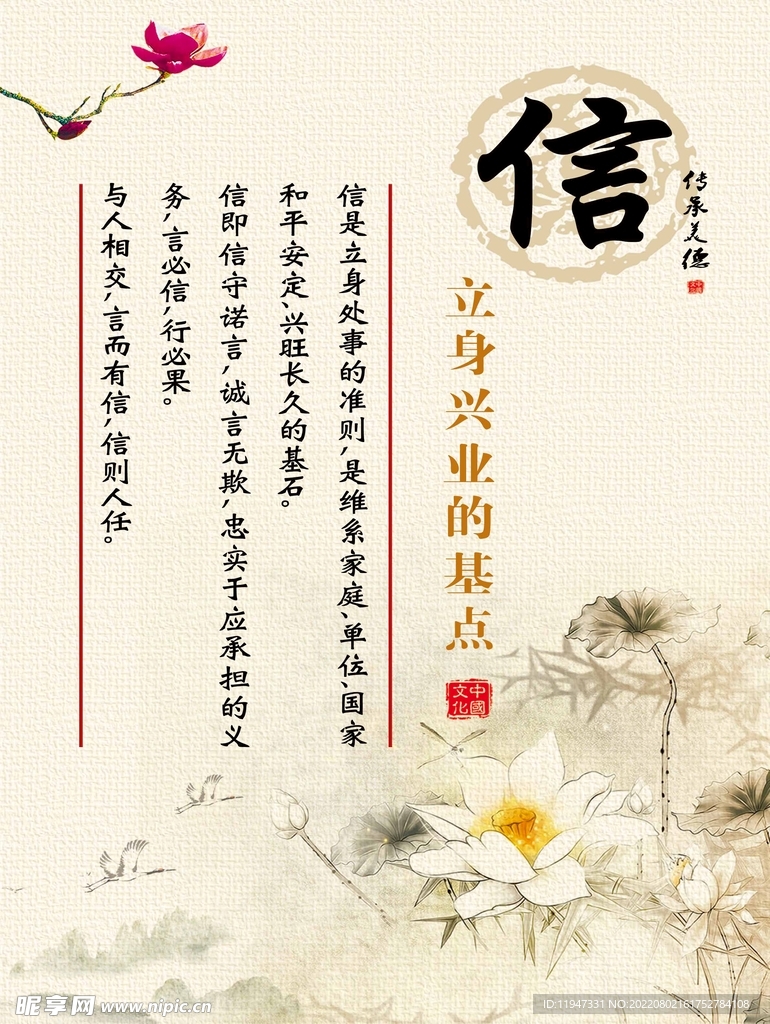 信
传承美德
中国文化
立身兴业的基点
中國文化
信是立身处事的准则,是维系家庭、单位、国家
和平安定、兴旺长久的基石。
信即信守诺言,诚言无欺,忠实于应承担的义
务,言必信,行必果。
与人相交,言而有信,信则人任。
昵享网 www.nipic.cn
ID:11947331 NO:20220802161752784108